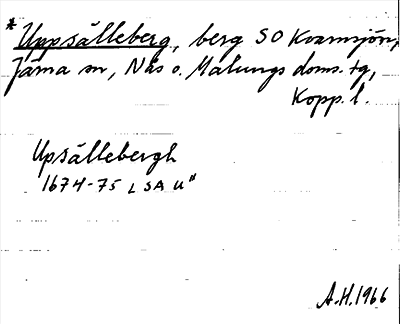 * Uppsälleberg, berg SO Kvarnsjön,
Järna sn, Nås o. Malungs doms. tg,
Kopp. l.
Upsällebergh
1674-75 LSA U"
A.H. 1966